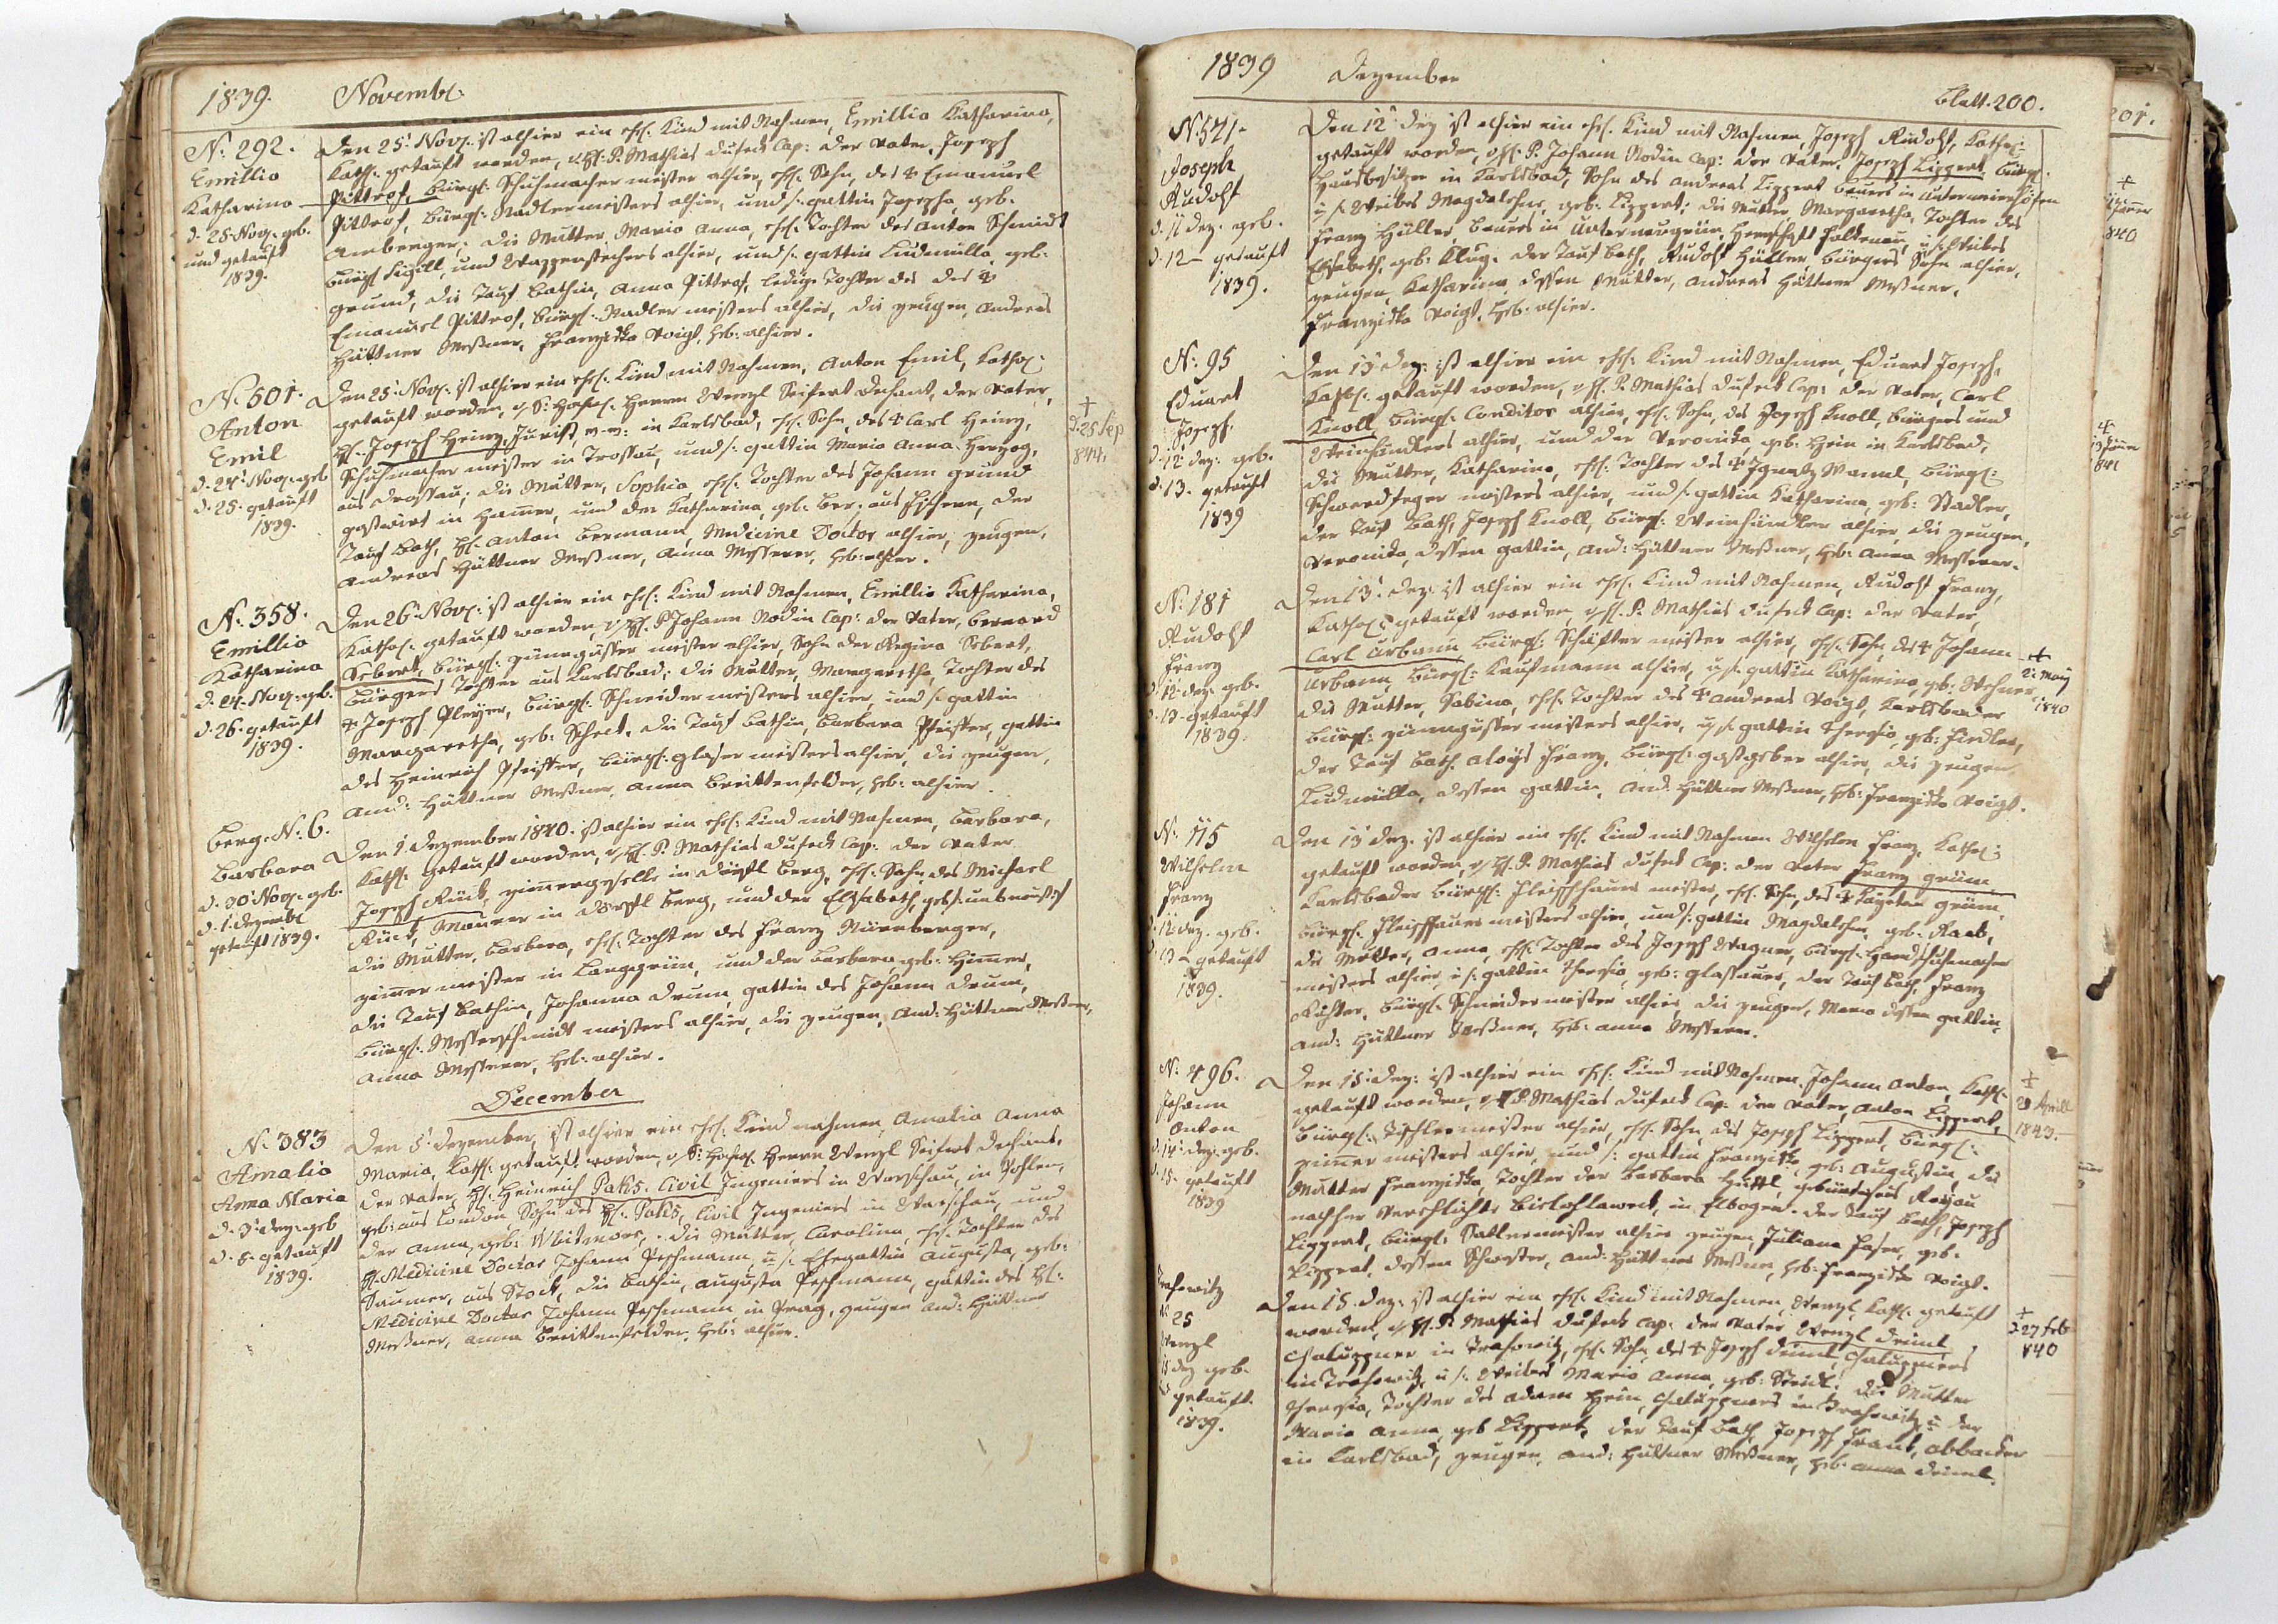 1839. Novemb.
N. 292.
Emillia
Katharina
d. 25 Nov. geb.
und getauft
1839.
Den 25t Nov. ist alhier ein ehl. Kind mit Nahmen, Emillia Katharina,
Kath. getauft worden, P. Mathias Duscheck Cap: der Vater, Joseph
Pittrof, bürgl: Schuhmacher meister alhier, ehl. Sohn, des † Emanuel
Pittrof, bürgl: Nadlermeisters alhier, und s. gattin Josepha, geb.
Amberger; die Mutter, Maria Anna, ehl. Tochter des Anton Schmidt
bürgl und Wappenstechers alhier, und s. gattin Ludmilla, geb:
grund, die Tauf Pathin, Anna Pittrof, ledige Tochter des des †
Emanuel Pittrof, bürgl: Nadler meisters alhier, die zeugen, Andreas
Hüttner Meßner, Franziska Voigt, Heb: alhier.
N. 501.
Anton
Emil
d. 24 Nov. geb
d. 25. getauft
1839.
Den 25t Nov. ist alhier ein ehl. Kind mit Nahmen, Anton Emil, Kathol:
getauft worden, Herrn Wenzl Seifert Dechant, der Vater,
H. Joseph Heinz, Jurist, in Karlsbad, ehl. Sohn, des † Carl Heinz,
Schuhmacher meister in Trossau, und s. gattin Maria Anna. Herzog,
aus Drossau; die Mutter, Sophia ehl. Tochter des Johann grund
gastwirt in Hamer, und der Katharina, geb. aus Fischern, der
Tauf Path, H. Anton Bermann, Medicine Doctor alhier, zeugen,
Andreas Hüttner Meßner, Anna Messerer, Heb: alhier.
†
d. 25 Sep
844.
N. 358.
Emillia
Katharina
d. 24. Nov. geb.
d. 26. getauft
1839.
Den 26t Nov. ist alhier ein ehl: Kind mit Nahmen, Emillia Katharina,
Kathol. getauft worden, P Johann Nodin Cap: der Vater, Bernard
Sebert, bürgl: zinngüsser meister alhier, Sohn der Regina Sebert,
bürgers Tochter aus Karlsbad; die Mutter, Margaretha, Tochter des
† Joseph Pleyer, bürgl: Schneider meisters alhier, und s. gattin
Margaretha, geb. die Tauf Pathin, Barbara Pfeiffer, gattin
des Heinrich Pfeiffer, bürgl: glaser meisters alhier, die zeugen,
And: Hüttner Meßner, Anna Breittenfelder, Heb: alhier.
Berg. N. 6.
Barbara
d. 30 Nov. geb.
d. 1. Dezemb
getauft 1839.
Den 1. Dezember 1840. ist alhier ein ehl: Kind mit Nahmen, Barbara,
Kath. getauft worden, P. Mathias Duscheck Cap: der Vater
Joseph Rück, zimergeselle in Dörfl Berg, ehl. Sohn, des Michael
Rück, Maurer in Dörfl Berg, und der Elisabeth,
die Mutter, Barbara, ehl. Tochter des Franz Nürnberger,
zimer meister in Langgrün, und der Barbara, geb. Himer,
die Tauf Pathin, Johanna Drum, gattin des Johann Drum,
bürgl: Messerschmidt meisters alhier, die zeugen, And: Hüttner Meßner,
Anna Messerer, Heb: alhier.
December
N. 383
Amalia
Anna Maria
d. 3 Dez. geb
d. 5. getauft
1839.
Den 5. Dezember, ist alhier ein ehel: Kind nahmen, Amalia Anna
Maria, Kath. getauft worden, Herrn Wenzl Seifert Dechant,
der Vater, H. Heinrich Paks. Civil Ingeniers in Warschau, in Pohlen,
geb: aus London Sohn des H. Paks, Civil Ingeniers in Warschau, und
der Anna, geb: Whitmore, die Mutter, Carolina, ehl. Tochter des
H. Medicine Doctor, Johann Peschmann, u. s. Ehegattin Augusta, geb:
Saumer, aus Stock, die Pathin, Augusta Peschmann, gattin des H:
Medicine Doctor Johann Peschmann in Prag, zeugen And: Hüttner
Meßner, Anna Breittenfelder, Heb: alhier.
1839 Dezember
Blatt. 200.
N. 571.
Joseph
Rudolf
d. 11 dez. geb.
d. 12 getauft
1839.
Den 12t dez ist alhier ein ehl. Kind mit Nahmen, Joseph Rudolf, Kathol:
getauft worden, P. Johann Nodin Cap: der Vater, Joseph Lippert, bürgl.
Hausbesitzer in Karlsbad, Sohn des Andreas Lippert Bauers in Untermeierhöfen
u s. Weibes Magdalehne, geb. Lippert; die Mutter, Margaretha, Tochter des
Franz Hüller, Bauers in Unterneugrün, Herrschaft Falkenau, u s. Weibes
Elisabeth, geb: Klug. der Tauf Path, Rudolf Hüller, bürgers Sohn alhier,
zeugen, Katharina, dessen Mutter, Andreas Hüttner Meßner,
Franziska Voigt, Heb. alhier.
N. 95
Eduart
Joseph.
d. 12 dez: geb.
d. 13. getauft
1839
Den 13t dez: ist alhier ein ehl. Kind mit Nahmen, Eduart Joseph,
Kathol. getauft worden, P. Mathias Duscheck Cap: der Vater, Carl
Knoll, bürgl: Conditor alhier, ehl. Sohn, des Joseph Knoll, bürgers und
Weinhändlers alhier, und der Veronika, geb: Hein in Karlsbad,
die Mutter, Katharina, ehl. Tochter des † Ignatz Mannl, bürgl:
Schwerdfeger meisters alhier, und s. gattin Katharina, geb: Stadler,
der Tauf Path, Joseph Knoll, bürgl: Weinhändler alhier, die zeugen,
Veronika, dessen gattin, And: Hüttner Meßner, Heb: Anna Messerer.
N. 181
Rudolf
Franz
d. 12 dez. geb.
d. 13. getauft
1839.
Den 13t dez. ist alhier ein ehl. Kind mit Nahmen, Rudolf Franz,
Kathol. getauft worden, P. Mathias Duscheck Cap: der Vater,
Carl Urbann bürgl: Schäfter meister alhier, ehl. Sohn, des † Johann
Urbann, bürgl: Kaufmann alhier, u s. gattin Katharina, geb: Wehner,
die Mutter, Sabina, ehl. Tochter des † Andreas Voigt, Karlsbader
bürgl: zinngüsser meisters alhier, u s. gattin Theresia, geb: Fiedler,
der Tauf Path, Aloys Franz, bürgl: gastgeber alhier, die zeugen
Ludmilla, dessen gattin, And: Hüttner Meßner, Heb: Franziska Voigt.
†
2: May
1840
N. 115
Wilhelm
Franz
d. 12 dez. geb.
13 getauft
1839.
Den 13t dez. ist alhier ein ehl. Kind mit Nahmen Wilhelm Franz, Kathol:
getauft worden, P. Mathias Duscheck Cap: der Vater Franz grüm
Karlsbader bürgl: Fleischhauer meister, ehl. Sohn, des † Kajetan grüm,
bürgl. Fleischhauer meisters alhier, und s. gattin Magdalehne, geb: Raab,
die Mutter, Anna, ehl. Tochter des Joseph Wagner, bürgl: Handschuhmacher
meisters alhier, u s. gattin Theresia, geb: glassauer, der Tauf Path, Franz
Richter, bürgl: Schneider meister alhier, die zeugen, Maria dessen gattin,
And: Hüttner Meßner, Heb: Anna Messerer.
N. 496.
Johann
Anton
d. 14 dez. geb.
d. 15. getauft
1839
Den 15t dez: ist alhier ein ehl. Kind mit Nahmen, Johann Anton, Kathl.
getauft worden, P. Mathias Duscheck Cap. der Vater, Anton Lippert,
bürgl. Tischler meister alhier, ehl. Sohn, des Joseph Lippert, bürgl:
zimer meisters alhier, und s: gattin Franziska, geb: Augustin, die
Mutter Franziska, Tochter der Barbara Hüttl,
nachher Verehlichte in Elbogen. der Tauf Path, Joseph
Lippert, bürgl: Sattlermeister alhier zeugen, Juliana Haser, geb.
Lippert, dessen Schwester, And: Hüttner Meßner, Heb: Franziska Voigt.
†
29 Aprill
1843.
Trahowitz
N. 25
Wenzl
15 dez geb.
getauft.
1839.
Den 15. dez: ist alhier ein ehl. Kind mit Nahmen, Wenzl, Kathl. getauft
worden, P. Mathias Duscheck Cap: der Vater Wenzl Deiml
Chaluppner in Trahowitz, ehl. Sohn, des † Joseph Deiml, Chaluppners
in Trahowitz u s. Weibes Maria Anna, geb: die Mutter
Theresia, Tochter des Adam Hein, Chaluppners in Trahowitz u der
Maria Anna, geb Lippert, der Tauf Path Joseph Frank,
in Karlsbad, zeugen, And: Hüttner Meßner, Heb: Anna Deiml.
†
d 27 Feb
840
201.
†
Jäner
840
†
Jänn
841